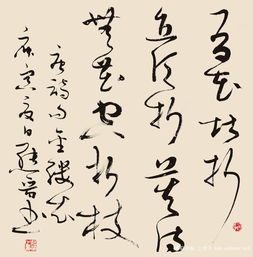 有花堪折
直须折莫待
無花空折枝
唐诗句金缕衣
庚寅夏日